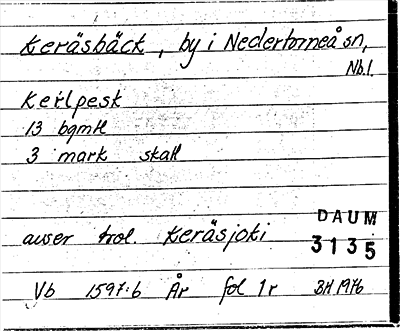 Keräsbäck, by i Nedertorneå sn,
Nb.l.
Keřlpesk
13 bgmtl
3 mark skatt
DAUM
avser trol. Keräsjoki 3135
Vb 1597:6 År fol 1r BH 1976